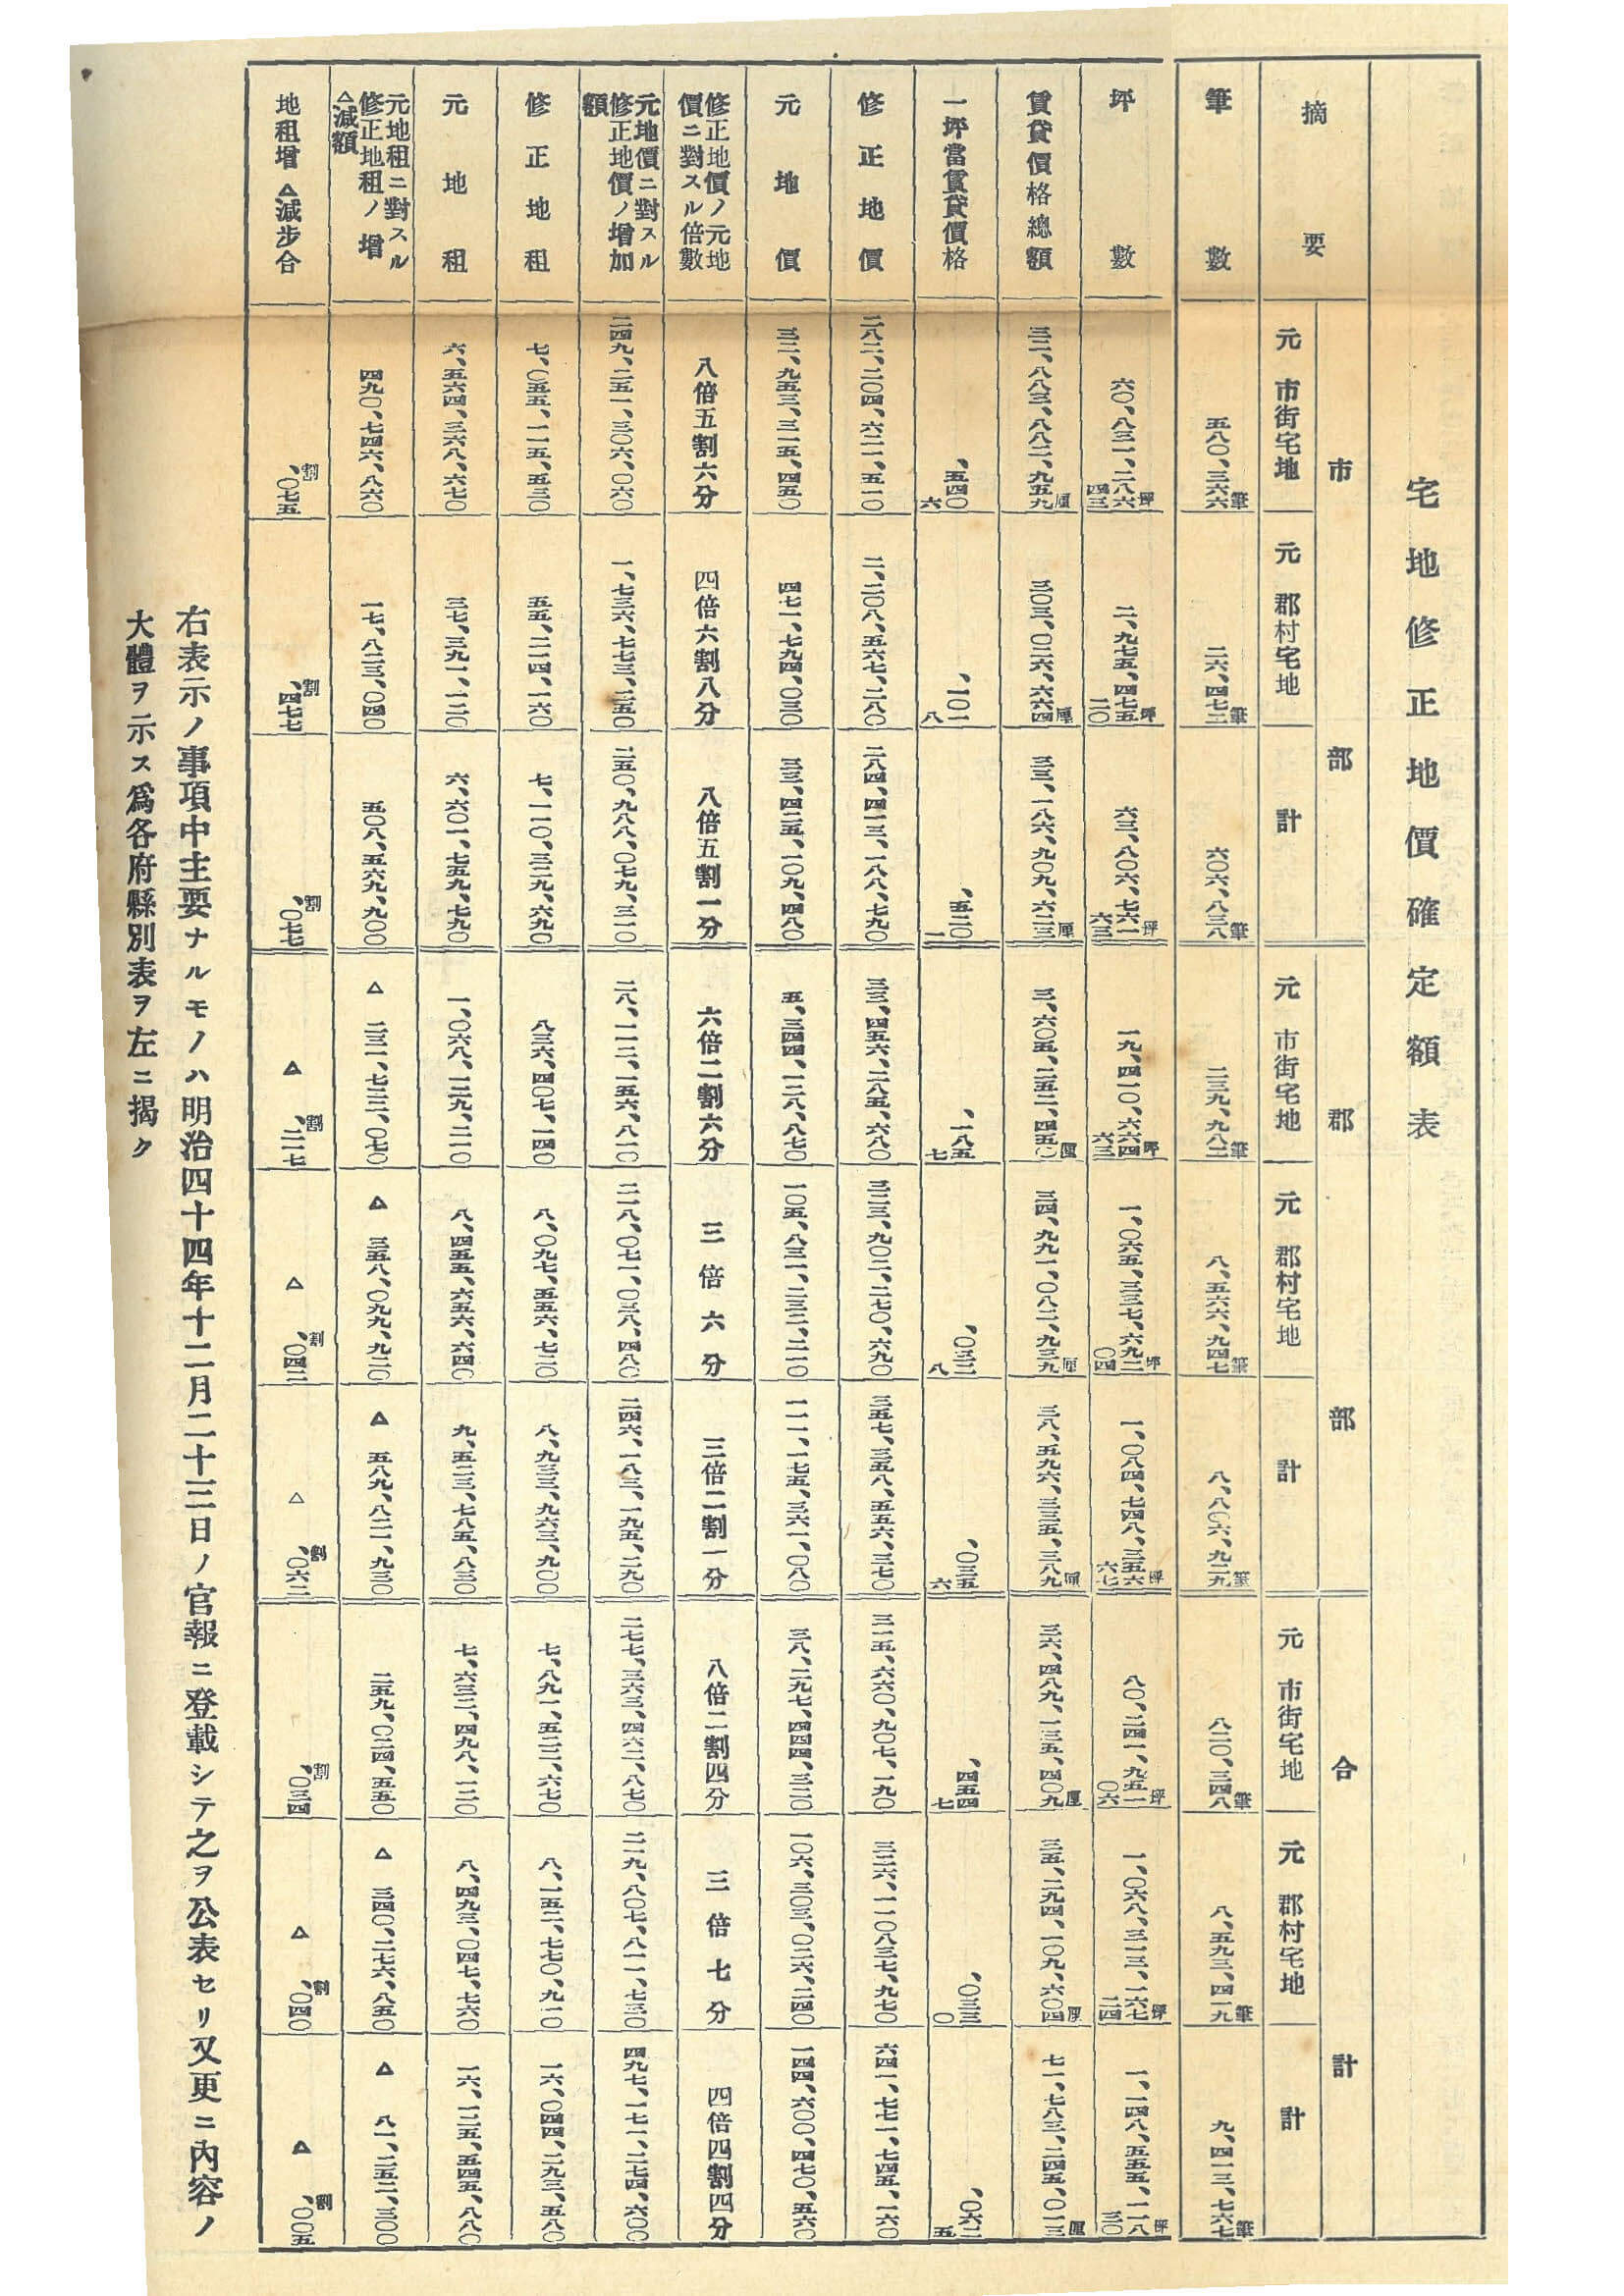 宅地修正地價確定額表
摘要 市部 郡部 合計
元市街宅地 元郡村宅地 計 元市街宅地 元郡村宅地 計 元市街宅地 元郡村宅地 計
筆數 五八〇、三六六筆 二六、四七二筆 六〇六、八三八筆 二三九、九八二筆 八、五六六、九四七筆 八、八〇六、九二九筆 八二〇、三四八筆 八、五九三、四一九筆 九、四一三、七六七筆
坪數 六〇、八三一、二八六坪四三 二、九七五、四七五坪二〇 六三、八〇六、七六一坪六三 一九、四一〇、六六四坪六三 一、〇六五、三三七、六九二坪〇四 一、〇八四、七四八、三五六坪六七 八〇、二四一、九五一坪〇六 一、〇六八、三一三、一六七坪二四 一、一四八、五五五、一一八坪三〇
賃貸價格總額 三二、八八三、八八二、九五九厘 三〇三、〇二六、六六四厘 三三、一八六、九〇九、六二三厘 三、六〇五、二五二、四五〇厘 三四、九九一、〇八二、九三九厘 三八、五九六、三三五、三八九厘 三六、四八九、一三五、四〇九厘 三五、二九四、一〇九、六〇四厘 七一、七八三、二四五、〇一三厘
一坪當賃貸價格 、五四〇六 、一〇一八 、五二〇一 、一八五七 、〇三二八 、〇三五六 、四五四七 、〇三三〇 、〇六二五
修正地價 二八二、二〇四、六二一、五一〇 二、二〇八、五六七、二八〇 二八四、四一三、一八八、七九〇 三三、四五六、二八五、六八〇 三二三、九〇二、二七〇、六九〇 三五七、三五八、五五六、三七〇 三一五、六六〇、九〇七、一九〇 三二六、一一〇八三七、九七〇 六四一、七七一、七四五、一六〇
元地價 三二、九五三、三一五、四五〇 四七一、七九四、〇三〇 三三、四二五、一〇九、四八〇 五、三四四、一二八、八七〇 一〇五、八三一、二三二、二一〇 一一一、一七五、三六一、〇八〇 三八、二九七、四四四、三二〇 一〇六、三〇三、〇二六、二四〇 一四四、六〇〇、四七〇、五六〇
修正地價ノ元地價ニ對スル倍數 八倍五割六分 四倍六割八分 八倍五割一分 六倍二割六分 三倍六分 三倍二割一分 八倍二割四分 三倍七分 四倍四割四分
元地價ニ對スル修正地價ノ增加額 二四九、二五一、三〇六、〇六〇 一、七三六、七七三、二五〇 二五〇、九八八、〇七九、三一〇 二八、一一二、一五六、八一〇 二一八、〇七一、〇三八、四八〇 二四六、一八三、一九五、二九〇 二七七、三六三、四六二、八七〇 二一九、八〇七、八一一、七三〇 四九七、一七一、二七四、六〇〇
修正地租 七、〇五五、一一五、五三〇 五五、二一四、一六〇 七、一一〇、三二九、六九〇 八三六、四〇七、一四〇 八、〇九七、五五六、七二〇 八、九三三、九六三、九〇〇 七、八九一、五二二、六七〇 八、一五二、七七〇、九一〇 一六、〇四四、二九三、五八〇
元地租 六、五六四、三六八、六七〇 三七、三九一、一二〇 六、六〇一、七五九、七九〇 一、〇六八、一二九、二一〇 八、四五五、六五六、六四〇 九、五二三、七八五、八三〇 七、六三二、四九八、一二〇 八、四九三、〇四七、七六〇 一六、一二五、五四五、八八〇
元地租ニ對スル修正地租ノ增△減額 四九〇、七四六、八六〇 一七、八二三、〇四〇 五〇八、五六九、九〇〇 △二三一、七二二、〇七〇 △三五八、〇九九、九二〇 △五八九、八二一、九三〇 二五九、〇二四、五五〇 △三四〇、二七六、八五〇 △八一、二五二、三〇〇
地租增△減步合 割、〇七五 割、四七七 割、〇七七 △割、二一七 △割、〇四二 △割、〇六二 割、〇三四 △割、〇四〇 △割、〇〇五
右表示ノ事項中主要ナルモノハ明治四十四年十二月二十三日ノ官報ニ登載シテ之ヲ公表セリ又更ニ內容ノ
大體ヲ示ス爲各府縣別表ヲ左ニ揭ク